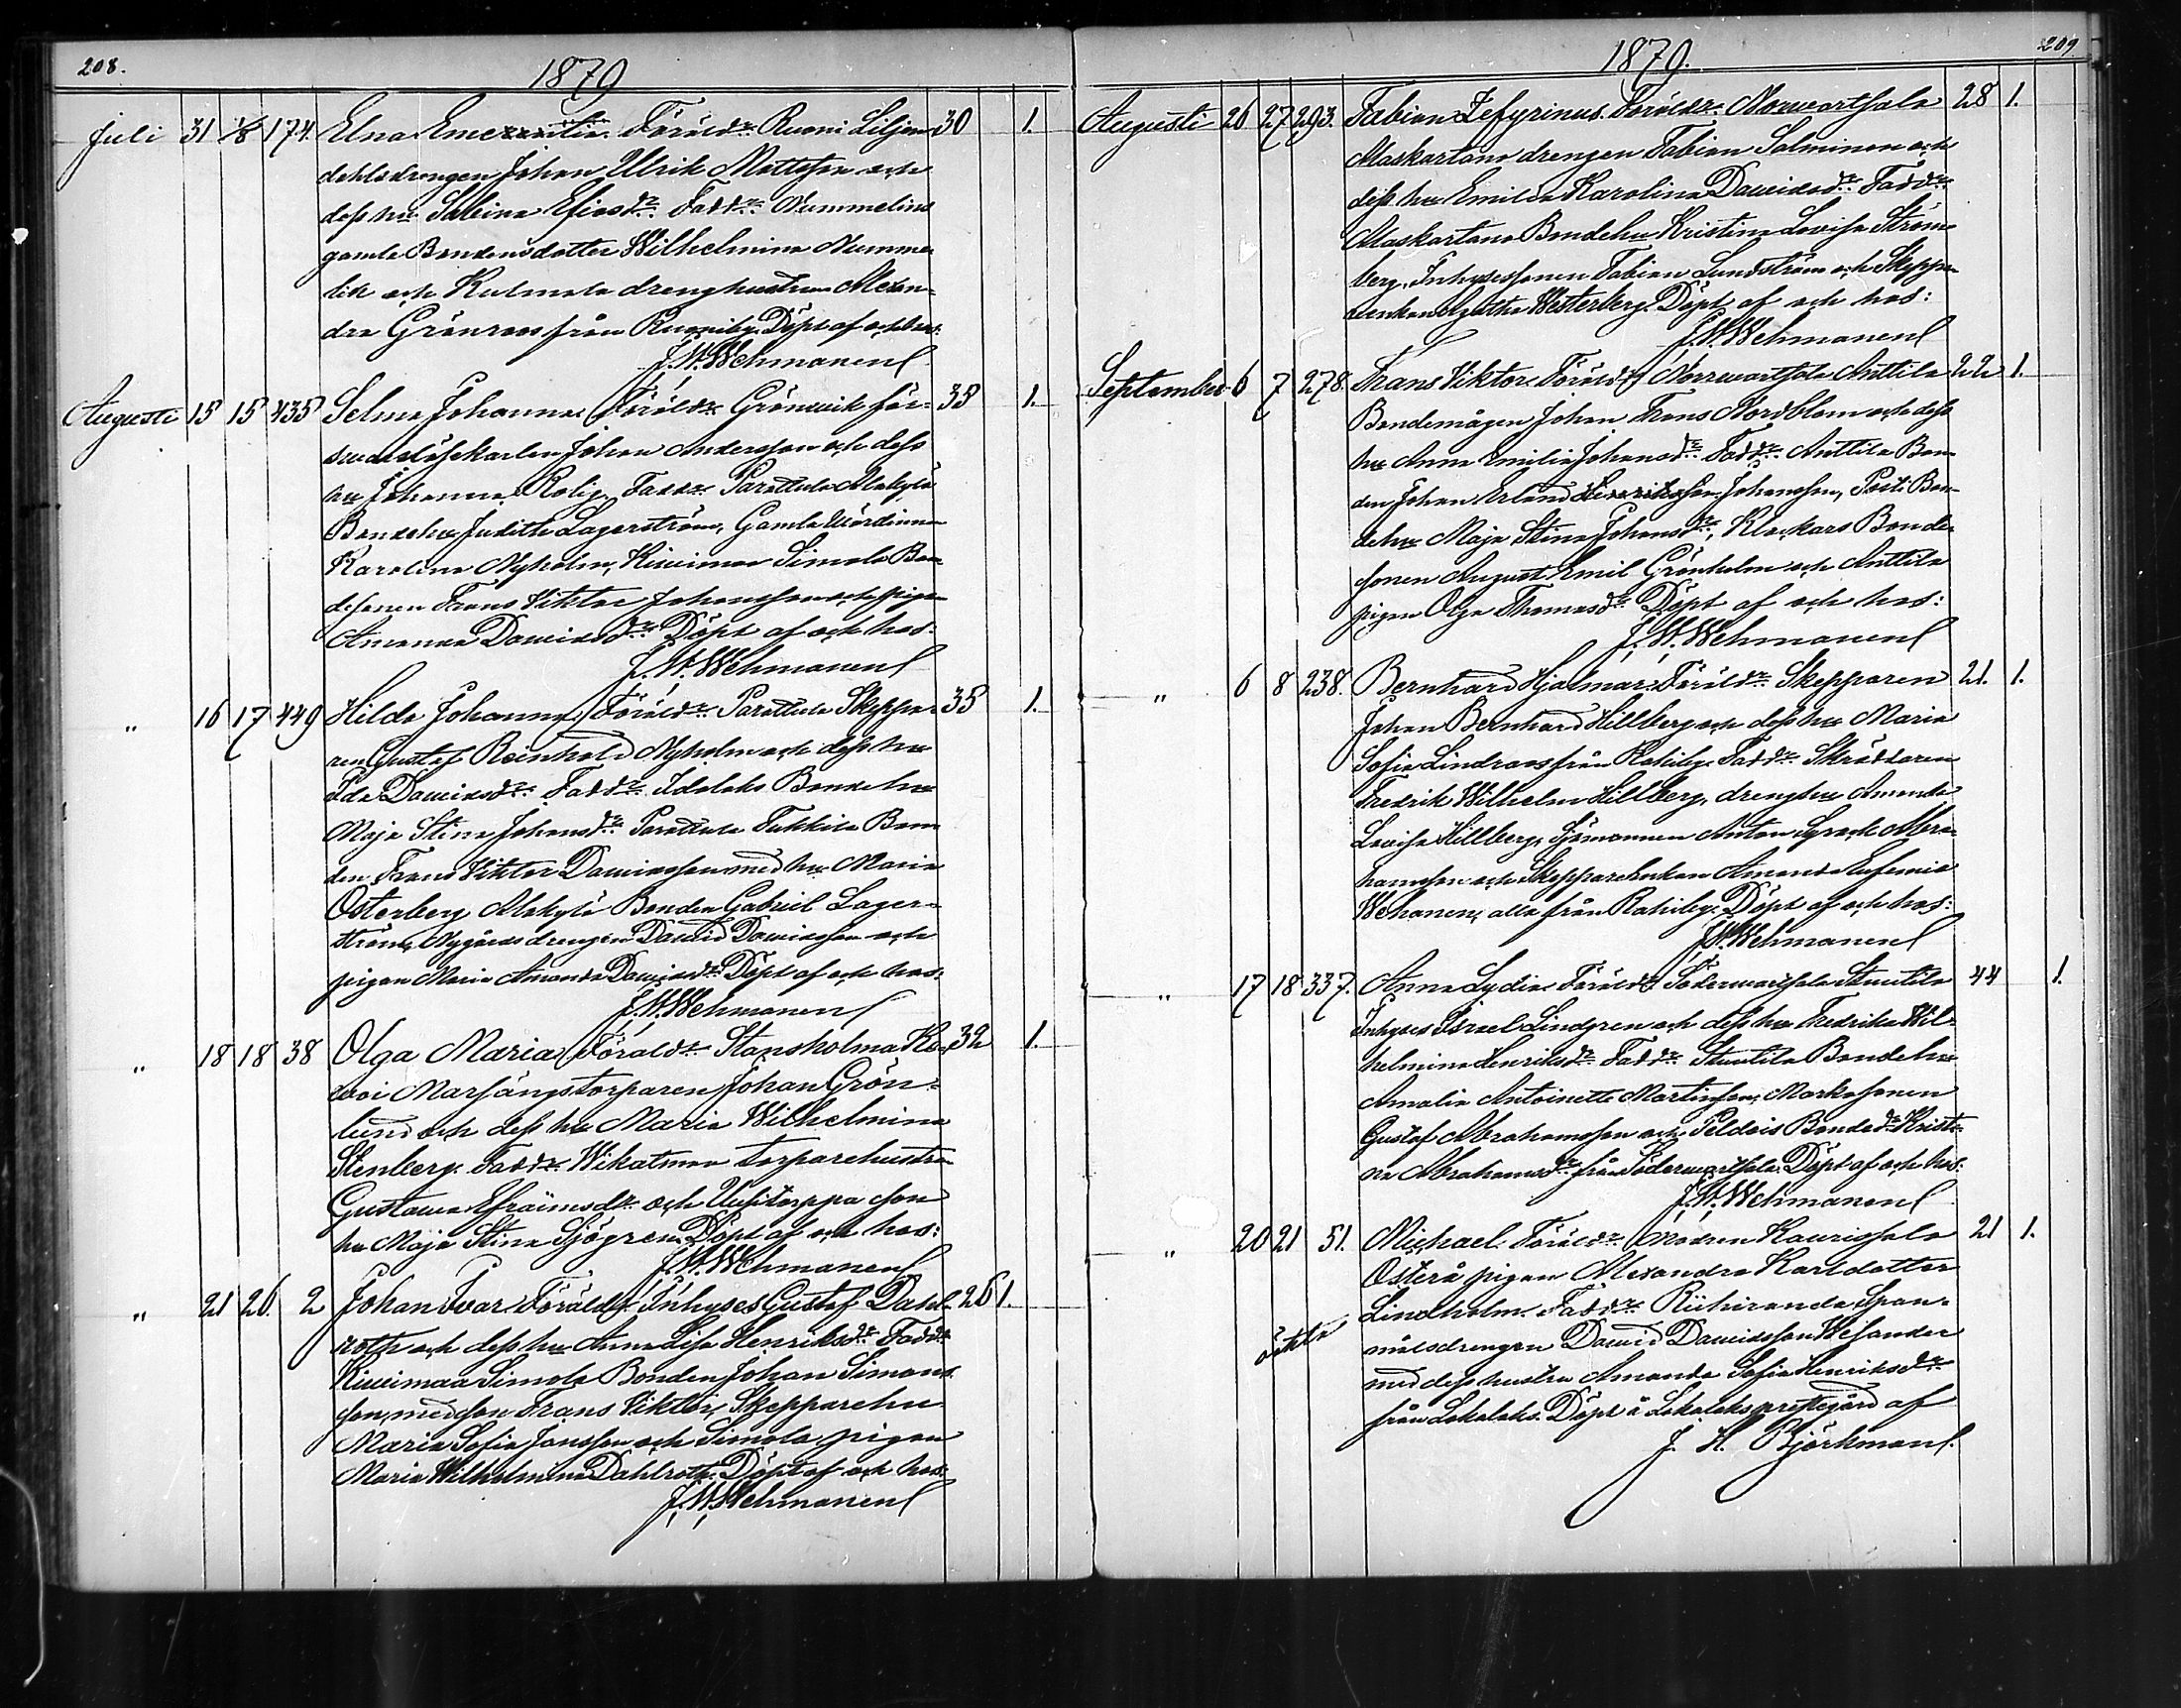 208.
1879
Juli 31 1/8 174. Elna Emerentia. Föräldr. Ruoni Liljen- 30 1.
dahls drengen Johan Ulrik Mattsson och
dess hu Sabina Efrasdr. Faddr. Nummelins
gamla Bondens dotter Wilhelmina Numme-
lin och Kulmala drenghustrun Alexan-
dra Grönroos från Ruoniby. Döpt af och hos:
J. W. Wehmanen
Augusti 15 15 435 Selma Johanna. Föräldr. Grönvik för- 35 1.
Johan Andersson och dess
hu Johanna Rolig. Faddr. Parattula Alakylä
Bondehu Judith Lagerström, Gamla Värdinnan
Karolina Nyholm, Kiwimaa Simola Bon-
desonen Frans Viktor Johansson och pigan
Amanda Davidsdr. Döpt af och hos:
J. W. Wehmanen
" 16 17 449 Hilda Johanna. Föräldr. Parattula Skeppa- 35 1.
ren Gustaf Reinhold Nyholm och dess hu
Ida Davidsdr. Faddr. Bondehu
Maja Stina Johansdr. Parattula Tukkila Bon-
den Frans Viktor Davidsson med hu Maria
Österberg Alakylä Bonden Gabriel Lager-
ström, Nygårds drengen David Davidsson och
pigan Maria Amanda Davidsdr. Döpt af och hos:
J. W. Wehmanen
" 18 18 38 Olga Maria. Föräldr. Stansholma Ko- 32 1.
Marsängstorparen Johan Grön-
lund och dess hu Maria Wilhelmina
Stenberg. Faddr. Wikatmaa torparehustru
Gustava Efraimsdr. och Uusitorppa son-
hu Maja Stina Sjögren. Döpt af och hos:
J. W. Wehmanen
" 21 26. 2 Johan Ivar. Föräldr. Inhyses Gustaf Dahl- 26 1.
roth och dess hu Anna Lisa Henriksdr. Faddr.
Kiwimaa Simola Bonden Johan Simons-
son, med son Frans Viktor, Skepparehu
Maria Sofia Jansson och Simola pigan
Maria Wilhelmina Dahlroth. Döpt af och hos:
J. W. Wehmanen
209
1879.
Augusti 26 27 293. Fabian Zefyrinus. Föräldr. Norrvartsala 28 1.
Alaskartano drengen Fabian Salminen och
dess hu Emilia Karolina Davidsdr. Faddr.
Alaskartano Bondehu Kristina Lovisa Ström-
berg, Inhysessonen Fabian Lundström och Skeppa-
reenkan Agatha Westerberg. Döpt af och hos:
J. W. Wehmanen
September 6 7 278. Frans Viktor. Föräldr. Norrvartsala Anttila 22 1.
Bondemågen Johan Frans Nordblom och dess
hu Anna Emilia Johansdr. Faddr. Anttila Bon-
den Johan Erland Henriksson Johansson, Posti Bon-
dehu Maja Stina Johansdr, Klockars Bonde-
sonen August Emil Grönholm och Anttila
pigan Olga Thomasdr. Döpt af och hos:
J. W. Wehmanen
" 6 8 238. Bernhard Hjalmar. Föräldr. Skepparen 21. 1.
Johan Bernhard Hillberg och dess hu Maria
Sofia Lindroos från Rahiby. Faddr. Skräddaren
Fredrik Wilhelm Hillberg, drenghu Amanda
Lovisa Hillberg, Sjömannen Anton Abra-
hamsson och Skepparehustrun Amanda Eufemia
Wehanen, alla från Rahiby. Döpt af och hos:
J. W. Wehmanen
" 17 18 337. Anna Lydia. Föräldr. Södervartsala Stuutila 44 1.
Inhyses Israel Lindgren och dess hu Fredrika Wil-
helmina Henriksdr. Faddr. Stuutila Bondehu
Amalia Antoinette Martinsson, Markosonen
Gustaf Abrahamsson och Peldois Bondedr. Kristi-
na Abrahamsdr. från Södervartsala. Döpt af och hos:
J. W. Wehmanen
" 20 21 51. Michael. Föräldr. Modren Haurissala 21 1.
Österå pigan Alexandra Karlsdotter
Lindholm. Faddr. Riihiranda Span-
oäkta
målsdrengen David Davidsson Wesander
med dess hustru Amanda Sofia Henriksdr.
från Lokalaks. Döpt å Lokalaks prestegård af
J. H. Björkman.